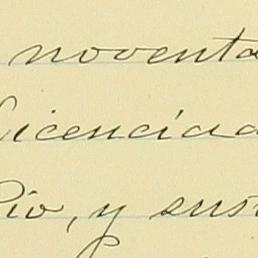 noventa
Licenciad
Pío, y sus